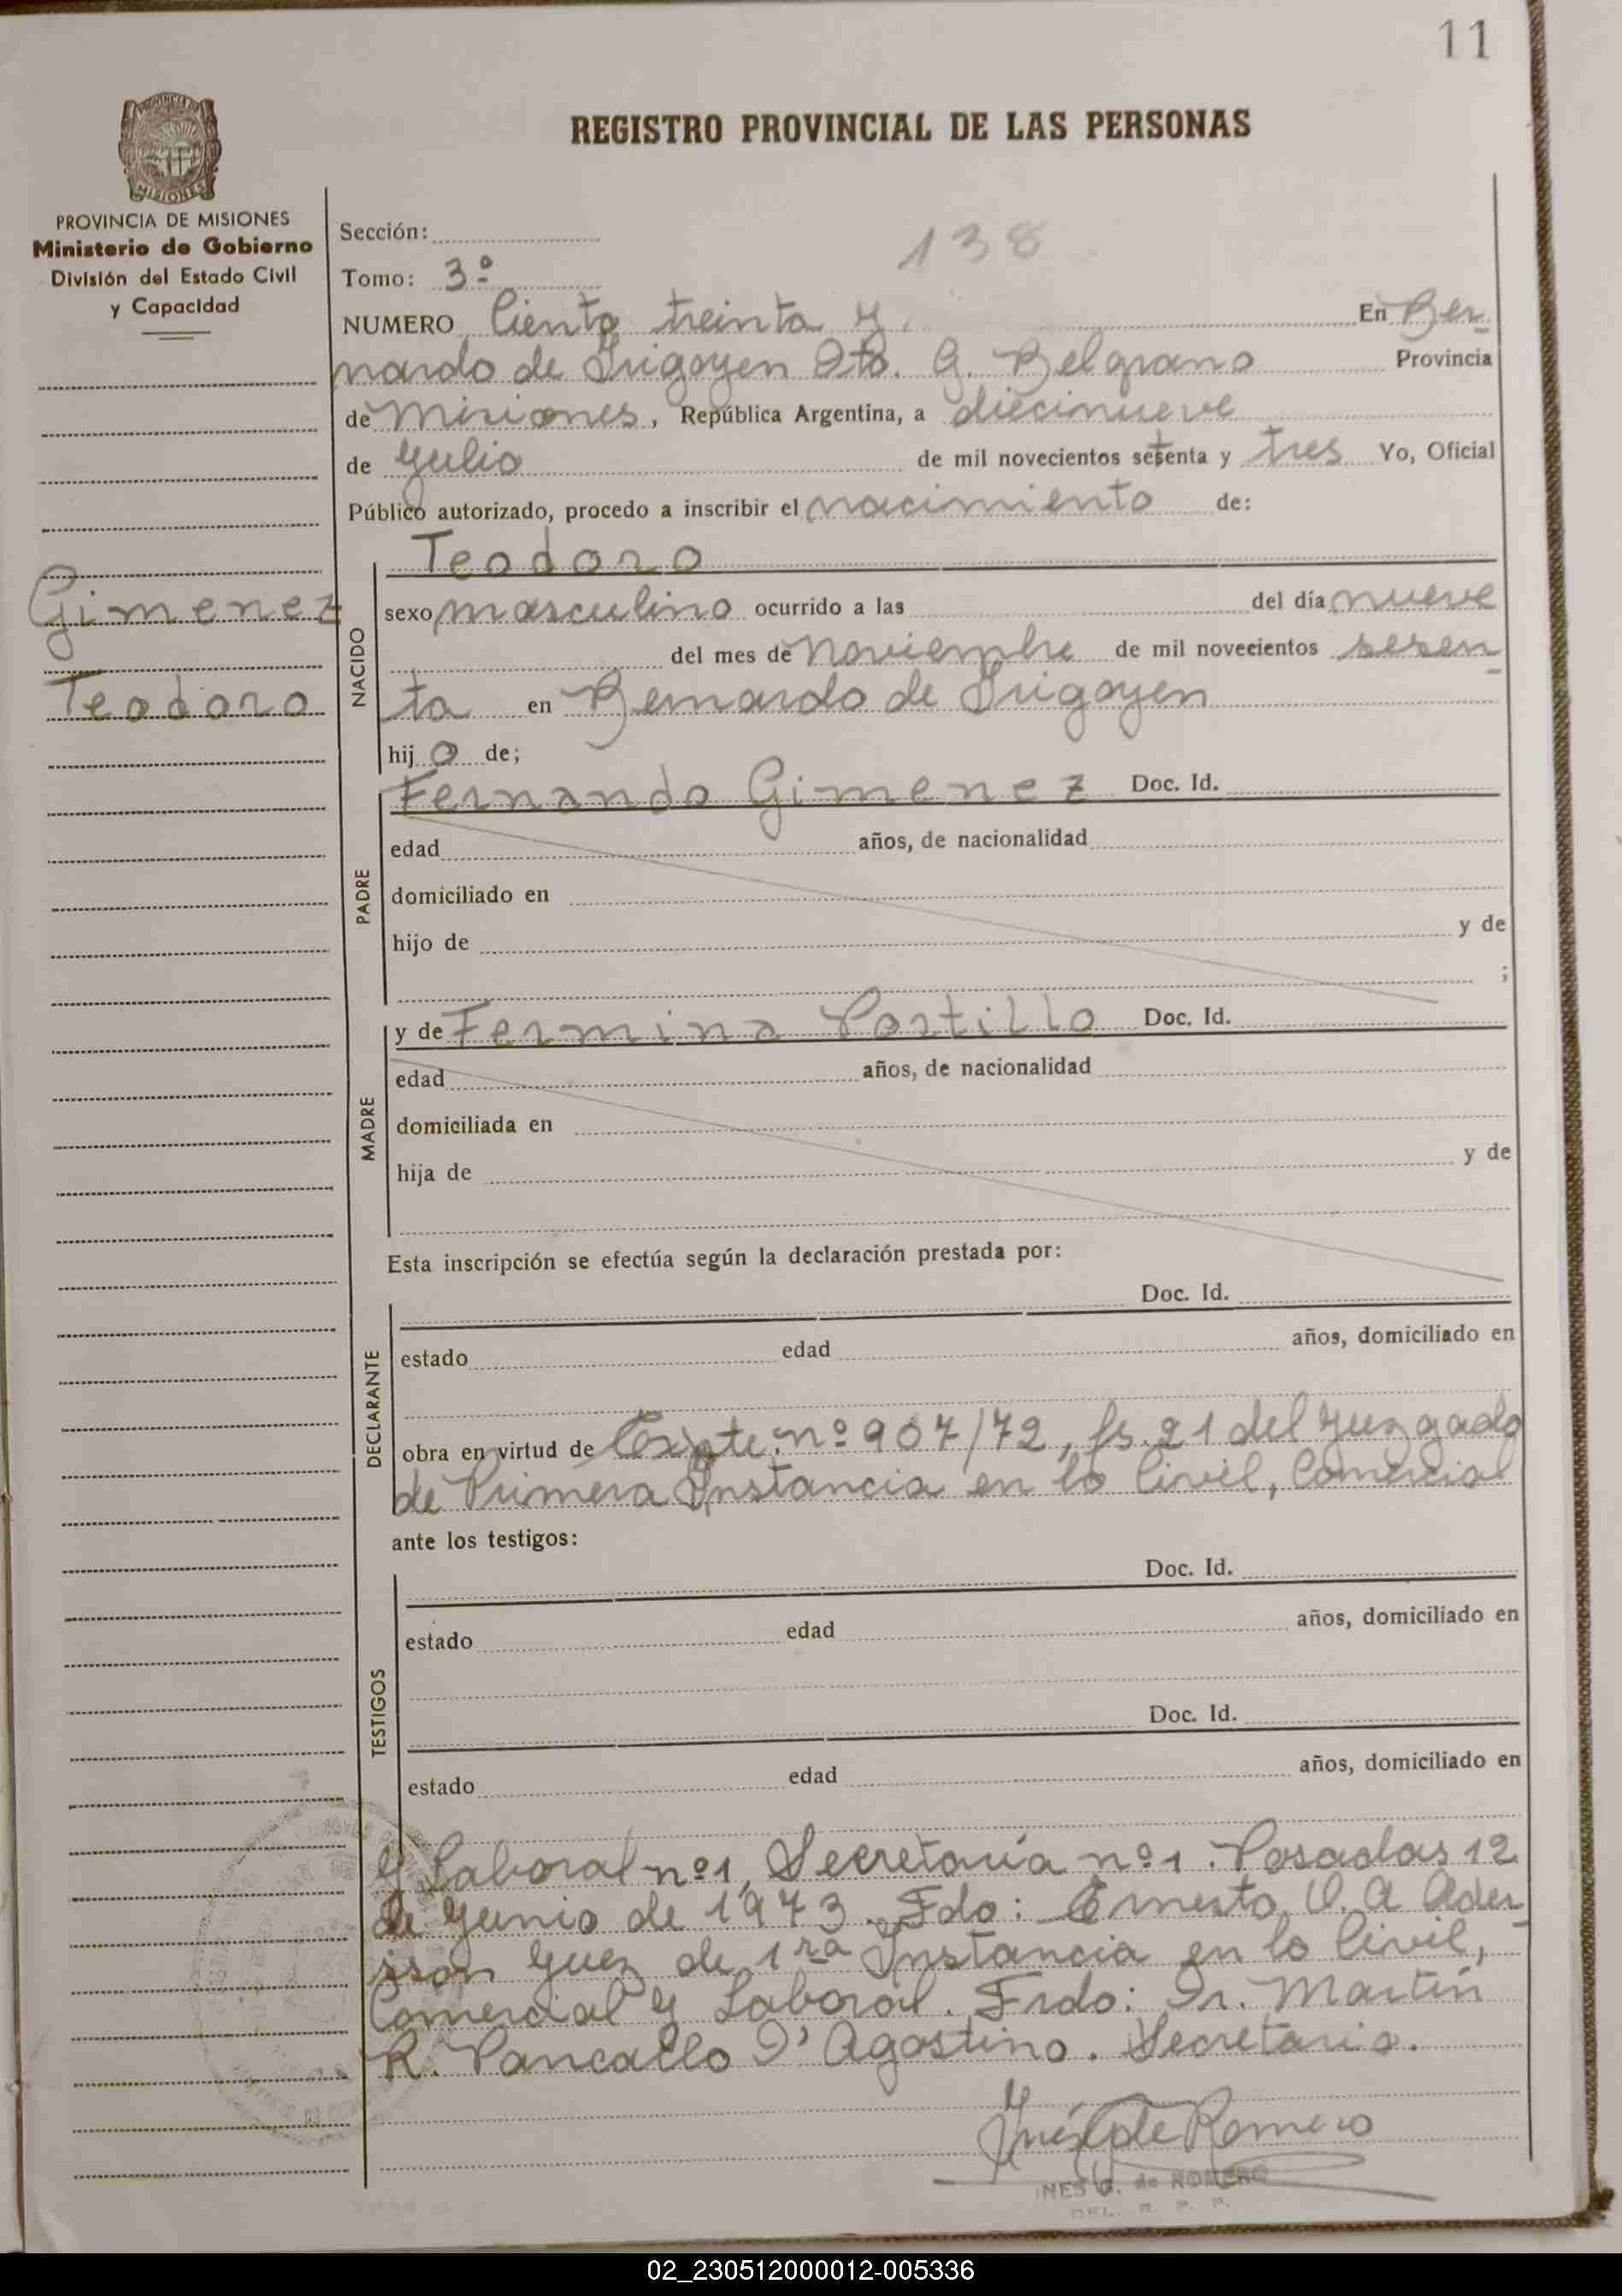 11
PROVINCIA DE MISIONES
REGISTRO PROVINCIAL DE LAS PERSONAS
PROVINCIA DE MISIONES
Ministerio de Gobierno
División del Estado Civil
y Capacidad
Sección:
138
Tomo: 3º
NUMERO Ciento treinta y En Ber
nardo de Irigoyen Dto. G. Belgrano Provincia
de Misiones, República Argentina, a diecinueve
de Julio de mil novecientos setenta y tres Yo, Oficial
Público autorizado, procedo a inscribir el nacimiento de:
Teodoro
Gimenez
Teodoro
NACIDO
sexo masculino ocurrido a las del día nueve
del mes de Noviembre de mil novecientos sesen
ta en Bernardo de Irigoyen
hij o de;
PADRE
Fernando Gimenez Doc. Id.
edad años, de nacionalidad
domiciliado en
hijo de y de
;
MADRE
y de Fermina Portillo Doc. Id.
edad años, de nacionalidad
domiciliada en
hija de y de
Esta inscripción se efectúa según la declaración prestada por:
DECLARANTE
Doc. Id.
estado edad años, domiciliado en
obra en virtud de Expte. nº 907/72, fs. 21 del Juzgado
de Primera Instancia en lo Civil, Comercial
ante los testigos:
TESTIGOS
Doc. Id.
estado edad años, domiciliado en
Doc. Id.
estado edad años, domiciliado en
y Laboral nº 1, Secretaría nº 1. Posadas 12
de Junio de 1973. Fdo: Ernesto V. A Ader
isson Juez de 1ra Instancia en lo Civil,
Comercial y Laboral. Frdo: Dr. Martín
R. Pancallo D' Agostino. Secretario.
Inés G de Romero
INES G. de ROMERO
DEL. R. P. P.
02_230512000012-005336